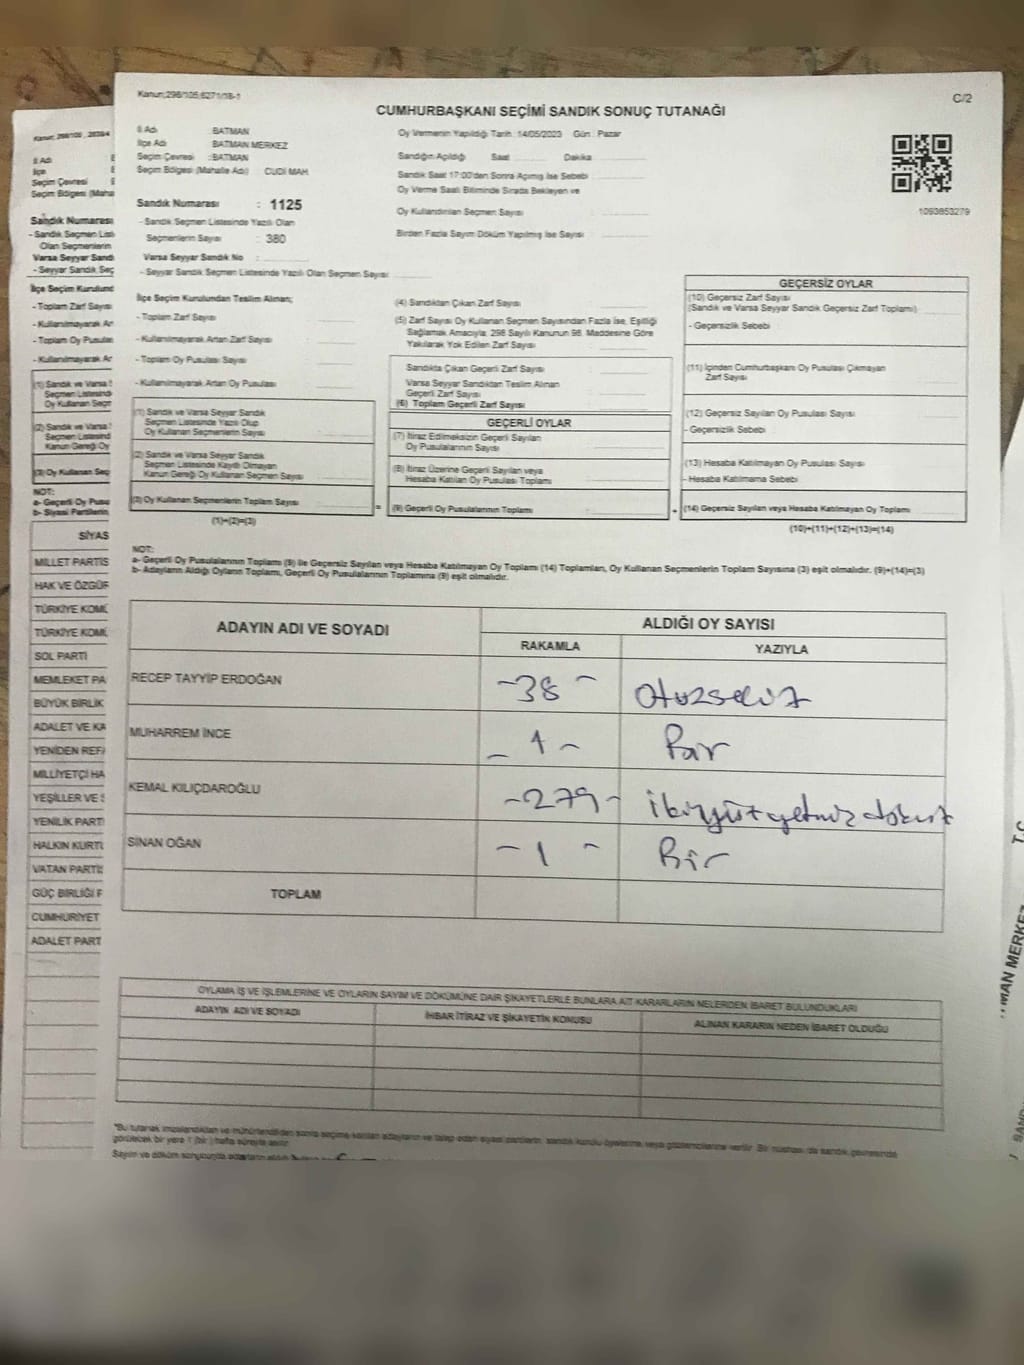 Kanun;298/105;6271/18-1
C/2
CUMHURBAŞKANI SEÇİMİ SANDIK SONUÇ TUTANAĞI
İl Adı : BATMAN
İlçe Adı : BATMAN MERKEZ
Seçim Çevresi : BATMAN
Seçim Bölgesi (Mahalle Adı) CUDİ MAH
Sandık Numarası : 1125
- Sandık Seçmen Listesinde Yazılı Olan
Seçmenlerin Sayısı : 380
Varsa Seyyar Sandık No :
- Seyyar Sandık Seçmen Listesinde Yazılı Olan Seçmen Sayısı
Oy Vermenin Yapıldığı Tarih : 14/05/2023 Gün : Pazar
Sandığın Açıldığı Saat Dakika
Sandık Saat 17:00'den Sonra Açılmış İse Sebebi
Oy Verme Saati Bitiminde Sırada Bekleyen ve
Oy Kullandırılan Seçmen Sayısı :
Birden Fazla Sayım Döküm Yapılmış İse Sayısı :
1093853279
İlçe Seçim Kurulundan Teslim Alınan;
- Toplam Zarf Sayısı :
- Kullanılmayarak Artan Zarf Sayısı :
- Toplam Oy Pusulası Sayısı
- Kullanılmayarak Artan Oy Pusulası :
(1) Sandık ve Varsa Seyyar Sandık
Seçmen Listesinde Yazılı Olup
Oy Kullanan Seçmenlerin Sayısı
(2) Sandık ve Varsa Seyyar Sandık
Seçmen Listesinde Kayıtlı Olmayan
Kanun Gereği Oy Kullanan Seçmen Sayısı
(3) Oy Kullanan Seçmenlerin Toplam Sayısı
(1)+(2)=(3)
(4) Sandıktan Çıkan Zarf Sayısı
(5) Zarf Sayısı Oy Kullanan Seçmen Sayısından Fazla İse, Eşitliği
Sağlamak Amacıyla, 298 Sayılı Kanunun 98. Maddesine Göre
Yakılarak Yok Edilen Zarf Sayısı
Sandıkta Çıkan Geçerli Zarf Sayısı
Varsa Seyyar Sandıktan Teslim Alınan
Geçerli Zarf Sayısı
(6) Toplam Geçerli Zarf Sayısı
GEÇERLİ OYLAR
(7) İtiraz Edilmeksizin Geçerli Sayılan
Oy Pusulalarının Sayısı
(8) İtiraz Üzerine Geçerli Sayılan veya
Hesaba Katılan Oy Pusulası Toplamı
= (9) Geçerli Oy Pusulalarının Toplamı
GEÇERSİZ OYLAR
(10) Geçersiz Zarf Sayısı
(Sandık ve Varsa Seyyar Sandık Geçersiz Zarf Toplamı)
- Geçersizlik Sebebi :
(11) İçinden Cumhurbaşkanı Oy Pusulası Çıkmayan
Zarf Sayısı
(12) Geçersiz Sayılan Oy Pusulası Sayısı
- Geçersizlik Sebebi :
(13) Hesaba Katılmayan Oy Pusulası Sayısı
- Hesaba Katılmama Sebebi :
+ (14) Geçersiz Sayılan veya Hesaba Katılmayan Oy Toplamı
(10)+(11)+(12)+(13)=(14)
NOT:
a- Geçerli Oy Pusulalarının Toplamı (9) ile Geçersiz Sayılan veya Hesaba Katılmayan Oy Toplamı (14) Toplamları, Oy Kullanan Seçmenlerin Toplam Sayısına (3) eşit olmalıdır. (9)+(14)=(3)
b- Adayların Aldığı Oyların Toplamı, Geçerli Oy Pusulalarının Toplamına (9) eşit olmalıdır.
ADAYIN ADI VE SOYADI
ALDIĞI OY SAYISI
RAKAMLA YAZIYLA
RECEP TAYYİP ERDOĞAN -38- Otuzsekiz
MUHARREM İNCE -1- Bir
KEMAL KILIÇDAROĞLU -279- ikiyüzyetmiz dokuz
SİNAN OĞAN -1- Bir
TOPLAM
OYLAMA İŞ VE İŞLEMLERİNE VE OYLARIN SAYIM VE DÖKÜMÜNE DAİR ŞİKAYETLERLE BUNLARA AİT KARARLARIN NELERDEN İBARET BULUNDUKLARI
ADAYIN ADI VE SOYADI İHBAR İTİRAZ VE ŞİKAYETİN KONUSU ALINAN KARARIN NEDEN İBARET OLDUĞU
İl Adı
İlçe
Seçim Çevresi
Seçim Bölgesi (Maha
Sandık Numarası
- Sandık Seçmen List
Olan Seçmenlerin
Varsa Seyyar Sandı
- Seyyar Sandık Seç
İlçe Seçim Kurulund
- Toplam Zarf Sayısı
- Kullanılmayarak Ar
- Toplam Oy Pusulas
- Kullanılmayarak Ar
(1) Sandık ve Varsa S
Seçmen Listesinde
Oy Kullanan Seçm
(2) Sandık ve Varsa
Seçmen Listesind
Kanun Gereği Oy
(3) Oy Kullanan Seç
NOT:
a- Geçerli Oy Pusu
b- Siyasi Partilerin
SİYAS
MİLLET PARTİS
HAK VE ÖZGÜR
TÜRKİYE KOMÜ
TÜRKİYE KOMÜ
SOL PARTİ
MEMLEKET PA
BÜYÜK BİRLİK
ADALET VE KA
YENİDEN REFA
MİLLİYETÇİ HA
YEŞİLLER VE S
YENİLİK PARTİ
HALKIN KURTU
VATAN PARTİS
GÜÇ BİRLİĞİ P
CUMHURİYET
ADALET PARTİ
T.C.
MAN MERKEZ